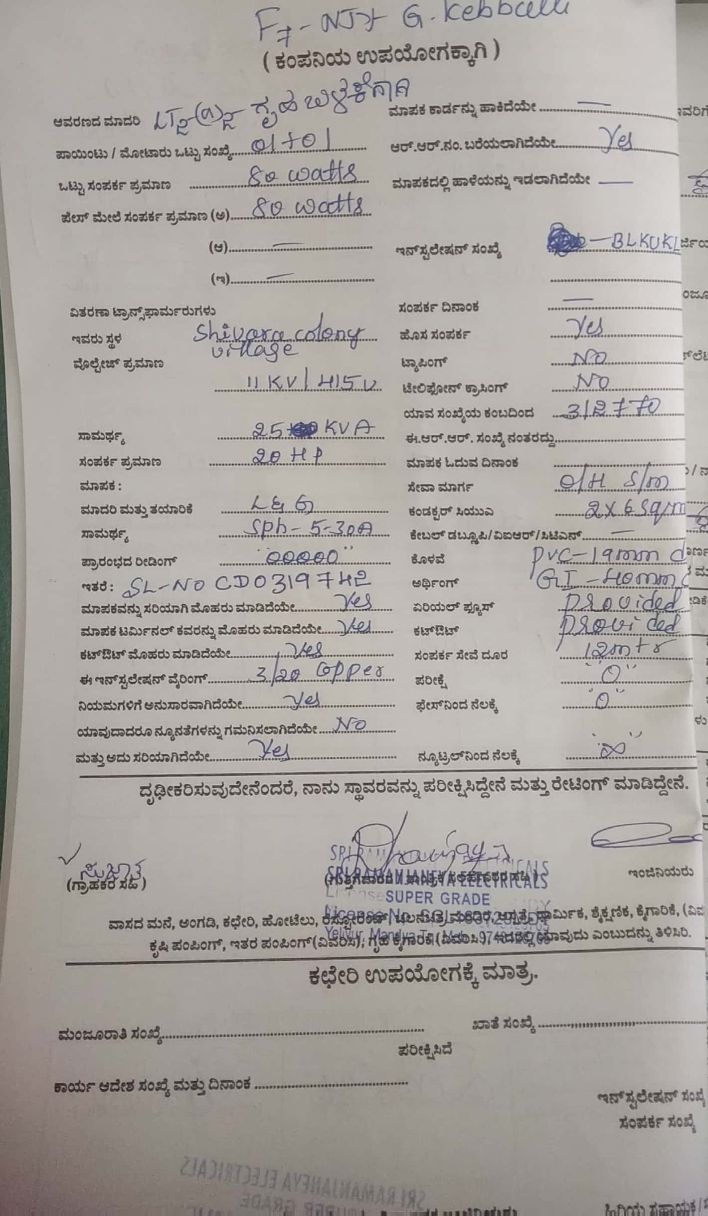 F7 - NJY G. Kebballi
( ಕಂಪನಿಯ ಉಪಯೋಗಕ್ಕಾಗಿ )
ಆವರಣದ ಮಾದರಿ LT2(a)2 ಗೃಹ ಬಳಕೆಗಾಗಿ
ಮಾಪಕ ಕಾರ್ಡನ್ನು ಹಾಕಿದೆಯೇ —
ಪಾಯಿಂಟು / ಮೋಟಾರು ಒಟ್ಟು ಸಂಖ್ಯೆ 01+01
ಆರ್.ಆರ್.ನಂ. ಬರೆಯಲಾಗಿದೆಯೇ Yes
ಒಟ್ಟು ಸಂಪರ್ಕ ಪ್ರಮಾಣ 80 watts
ಮಾಪಕದಲ್ಲಿ ಹಾಳೆಯನ್ನು ಇಡಲಾಗಿದೆಯೇ —
ಫೇಸ್ ಮೇಲೆ ಸಂಪರ್ಕ ಪ್ರಮಾಣ (ಅ) 80 watts
(ಆ) —
ಇನ್‌ಸ್ಟಲೇಷನ್ ಸಂಖ್ಯೆ - BLKUKL
(ಇ) —
ವಿತರಣಾ ಟ್ರಾನ್ಸ್‌ಫಾರ್ಮರುಗಳು
ಸಂಪರ್ಕ ದಿನಾಂಕ —
ಇವರು ಸ್ಥಳ Shivara colony village
ಹೊಸ ಸಂಪರ್ಕ Yes
ವೊಲ್ಟೇಜ್ ಪ್ರಮಾಣ 11 KV / 415 V
ಟ್ಯಾಪಿಂಗ್ NO
ಟೇಲಿಫೋನ್ ಕ್ರಾಸಿಂಗ್ NO
ಯಾವ ಸಂಖ್ಯೆಯ ಕಂಬದಿಂದ 312770
ಸಾಮರ್ಥ್ಯ 25 KVA
ಈ.ಆರ್.ಆರ್. ಸಂಖ್ಯೆ ನಂತರದ್ದು
ಸಂಪರ್ಕ ಪ್ರಮಾಣ 20 HP
ಮಾಪಕ ಓದುವ ದಿನಾಂಕ
ಮಾಪಕ :
ಸೇವಾ ಮಾರ್ಗ O/H S/m
ಮಾದರಿ ಮತ್ತು ತಯಾರಿಕೆ L&G
ಕಂಡಕ್ಟರ್ ಸಿಯುಎ 2x6 Sqmm
ಸಾಮರ್ಥ್ಯ Sph-5-30A
ಕೇಬಲ್ ಡಬ್ಲ್ಯೂಪಿ/ವಿಐಆರ್/ಸಿಟಿಎಸ್ —
ಪ್ರಾರಂಭದ ರೀಡಿಂಗ್ "00000"
ಕೊಳವೆ PVC-19mm d
ಇತರೆ : SL-NO CD0319742
ಅರ್ಥಿಂಗ್ GI-40mm
ಮಾಪಕವನ್ನು ಸರಿಯಾಗಿ ಮೊಹರು ಮಾಡಿದೆಯೇ Yes
ಏರಿಯಲ್ ಫ್ಯೂಸ್ provided
ಮಾಪಕ ಟರ್ಮಿನಲ್ ಕವರನ್ನು ಮೊಹರು ಮಾಡಿದೆಯೇ Yes
ಕಟ್‌ಔಟ್ provided
ಕಟ್‌ಔಟ್ ಮೊಹರು ಮಾಡಿದೆಯೇ Yes
ಸಂಪರ್ಕ ಸೇವೆ ದೂರ 12mtr
ಈ ಇನ್‌ಸ್ಟಲೇಷನ್ ವೈರಿಂಗ್ 3/20 Copper
ಪರೀಕ್ಷೆ "0"
ನಿಯಮಗಳಿಗೆ ಅನುಸಾರವಾಗಿದೆಯೇ Yes
ಫೇಸ್‌ನಿಂದ ನೆಲಕ್ಕೆ "0"
ಯಾವುದಾದರೂ ನ್ಯೂನತೆಗಳನ್ನು ಗಮನಿಸಲಾಗಿದೆಯೇ NO
ಮತ್ತು ಅದು ಸರಿಯಾಗಿದೆಯೇ Yes
ನ್ಯೂಟ್ರಲ್‌ನಿಂದ ನೆಲಕ್ಕೆ "∞"
ದೃಢೀಕರಿಸುವುದೇನೆಂದರೆ, ನಾನು ಸ್ಥಾವರವನ್ನು ಪರೀಕ್ಷಿಸಿದ್ದೇನೆ ಮತ್ತು ರೇಟಿಂಗ್ ಮಾಡಿದ್ದೇನೆ.
ಸುಜಾತ
(ಗ್ರಾಹಕರ ಸಹಿ)
ಇಂಜಿನಿಯರು
SRI RAMANJANEYA ELECTRICALS
SUPER GRADE
ವಾಸದ ಮನೆ, ಅಂಗಡಿ, ಕಛೇರಿ, ಹೋಟೆಲು, ಧಾರ್ಮಿಕ, ಶೈಕ್ಷಣಿಕ, ಕೈಗಾರಿಕೆ, (ವಿವ
ಕೃಷಿ ಪಂಪಿಂಗ್, ಇತರ ಪಂಪಿಂಗ್(ವಿವರಿಸಿ), ಗೃಹ ಕೈಗಾರಿಕೆ(ವಿವರಿಸಿ), ಇದರಲ್ಲಿ ಯಾವುದು ಎಂಬುದನ್ನು ತಿಳಿಸಿರಿ.
ಕಛೇರಿ ಉಪಯೋಗಕ್ಕೆ ಮಾತ್ರ.
ಮಂಜೂರಾತಿ ಸಂಖ್ಯೆ
ಖಾತೆ ಸಂಖ್ಯೆ
ಪರೀಕ್ಷಿಸಿದೆ
ಕಾರ್ಯ ಆದೇಶ ಸಂಖ್ಯೆ ಮತ್ತು ದಿನಾಂಕ
ಇನ್‌ಸ್ಟಲೇಷನ್ ಸಂಖ್ಯೆ
ಸಂಪರ್ಕ ಸಂಖ್ಯೆ
ಹಿರಿಯ ಸಹಾಯಕ